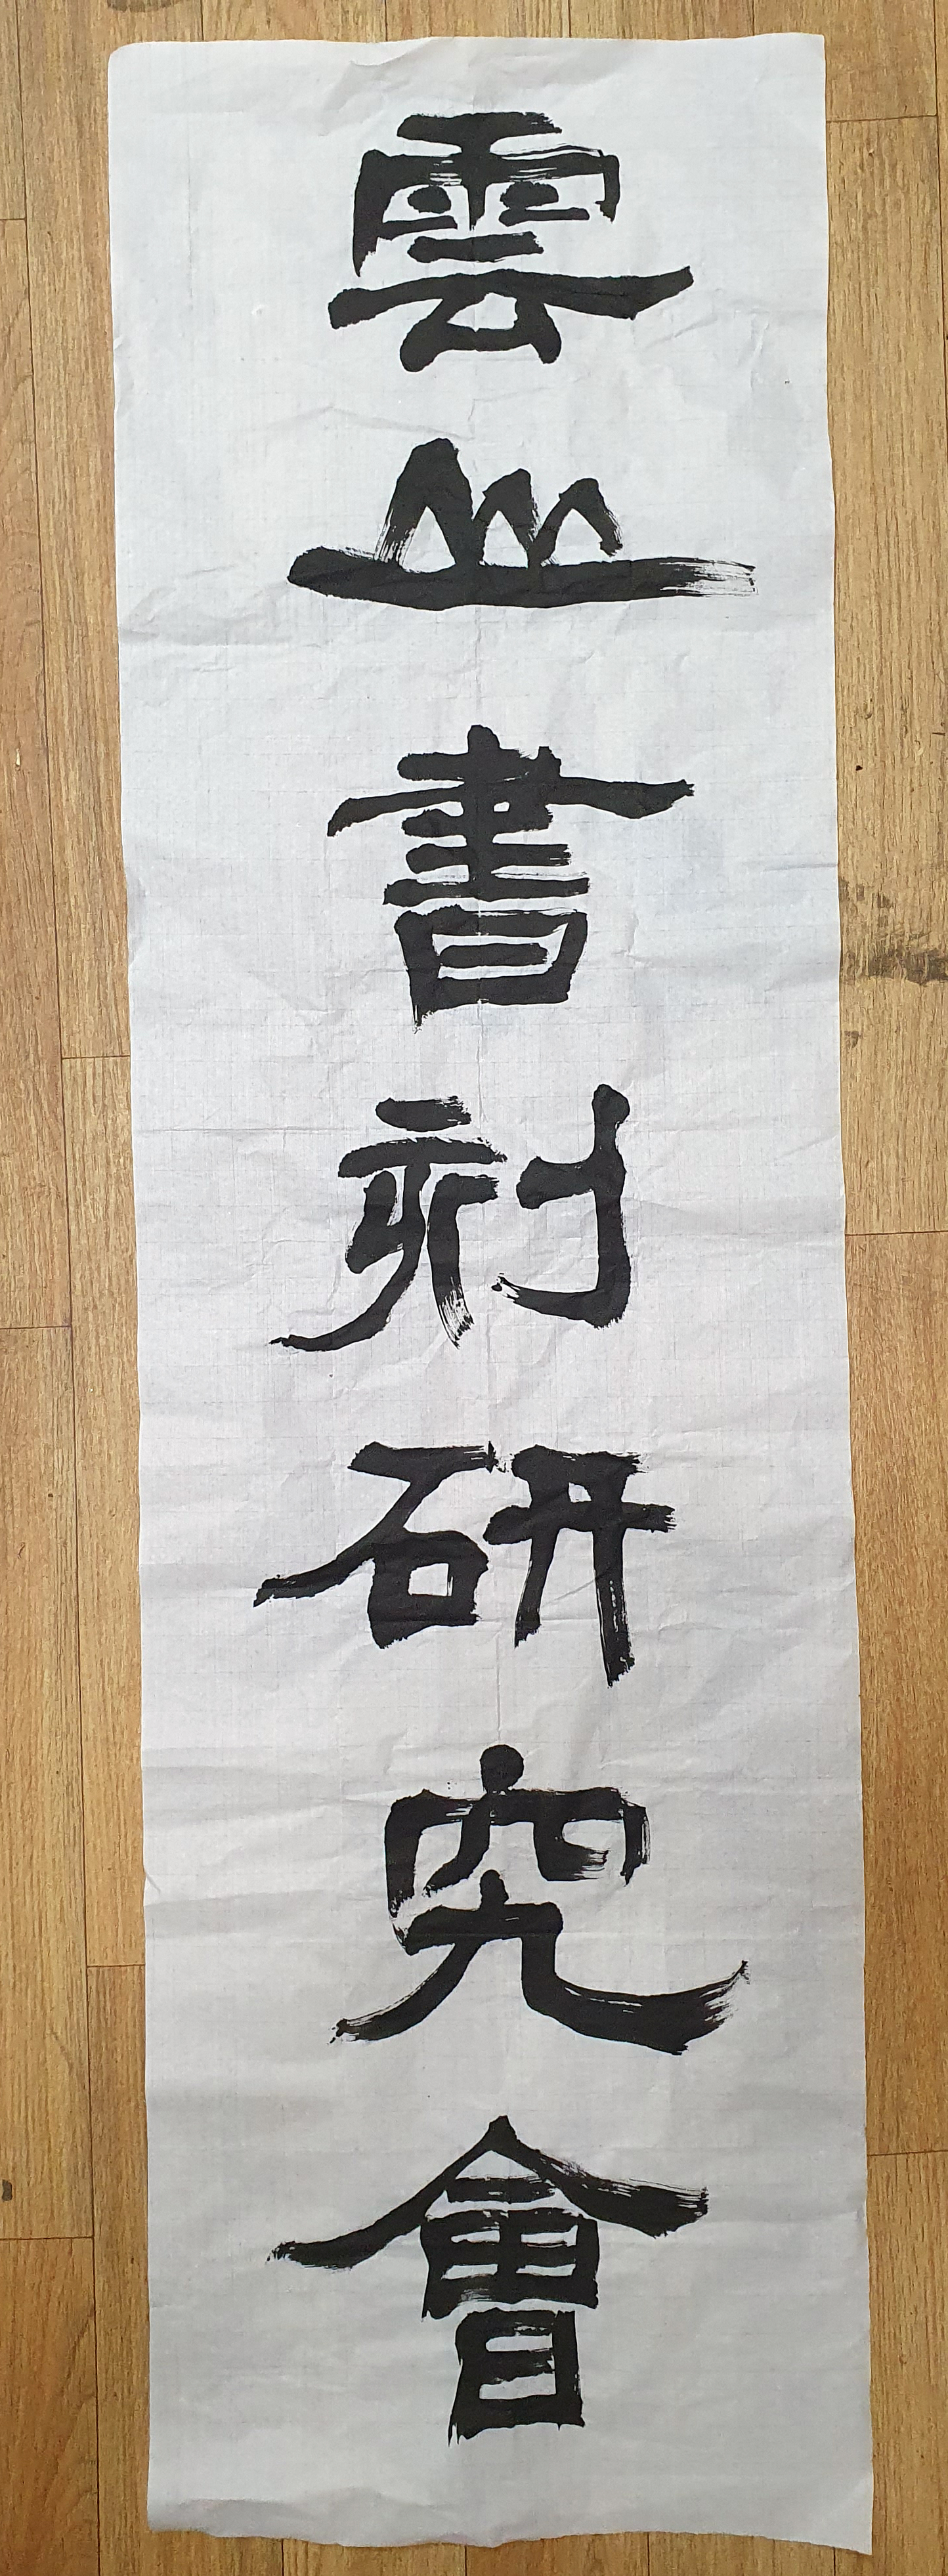 雲山書刻研究會